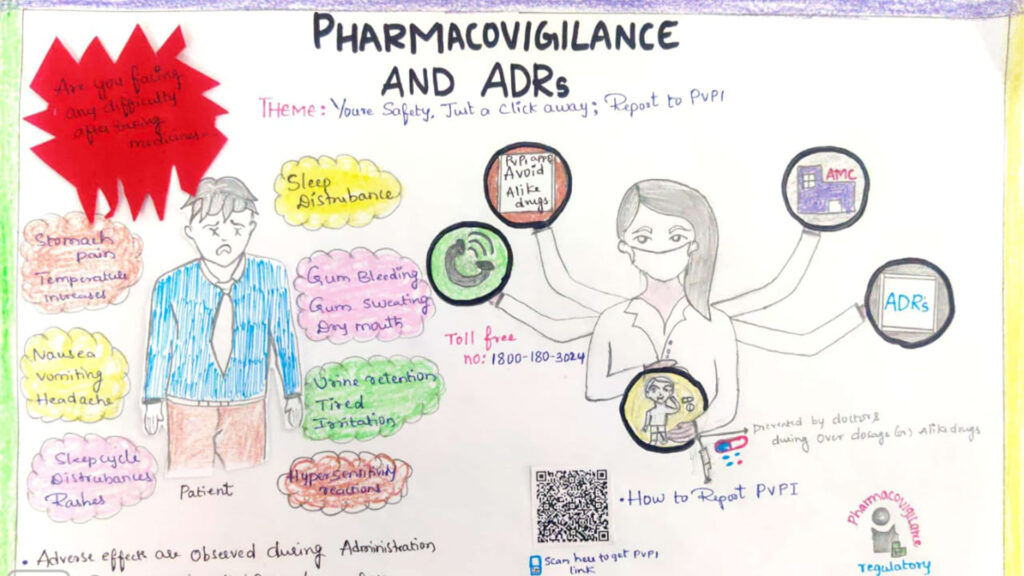 PHARMACOVIGILANCE
AND ADRs
THEME: Youre Safety, Just a Click away; Report to PVPI
Are you facing
any difficulty
after taking
medicines...
Sleep
Distrubance
Stomach
pain
Temperature
increases
Gum Bleeding
Gum Sweating
Dry mouth
Nausea
vomiting
Headache
Urine retention
Tired
Irritation
Sleepcycle
Distrubances
Rashes
Hypersensitivity
reactions
Patient
PvPi app
Avoid
Alike
drugs
AMC
ADRs
Toll free
no: 1800-180-3024
prevented by doctors
during Over dosage (or) Alike drugs
• How to Report PVPI
Scan here to get PVPI
link
Pharmacovigilance
regulatory
• Adverse effects are Observed during Administration